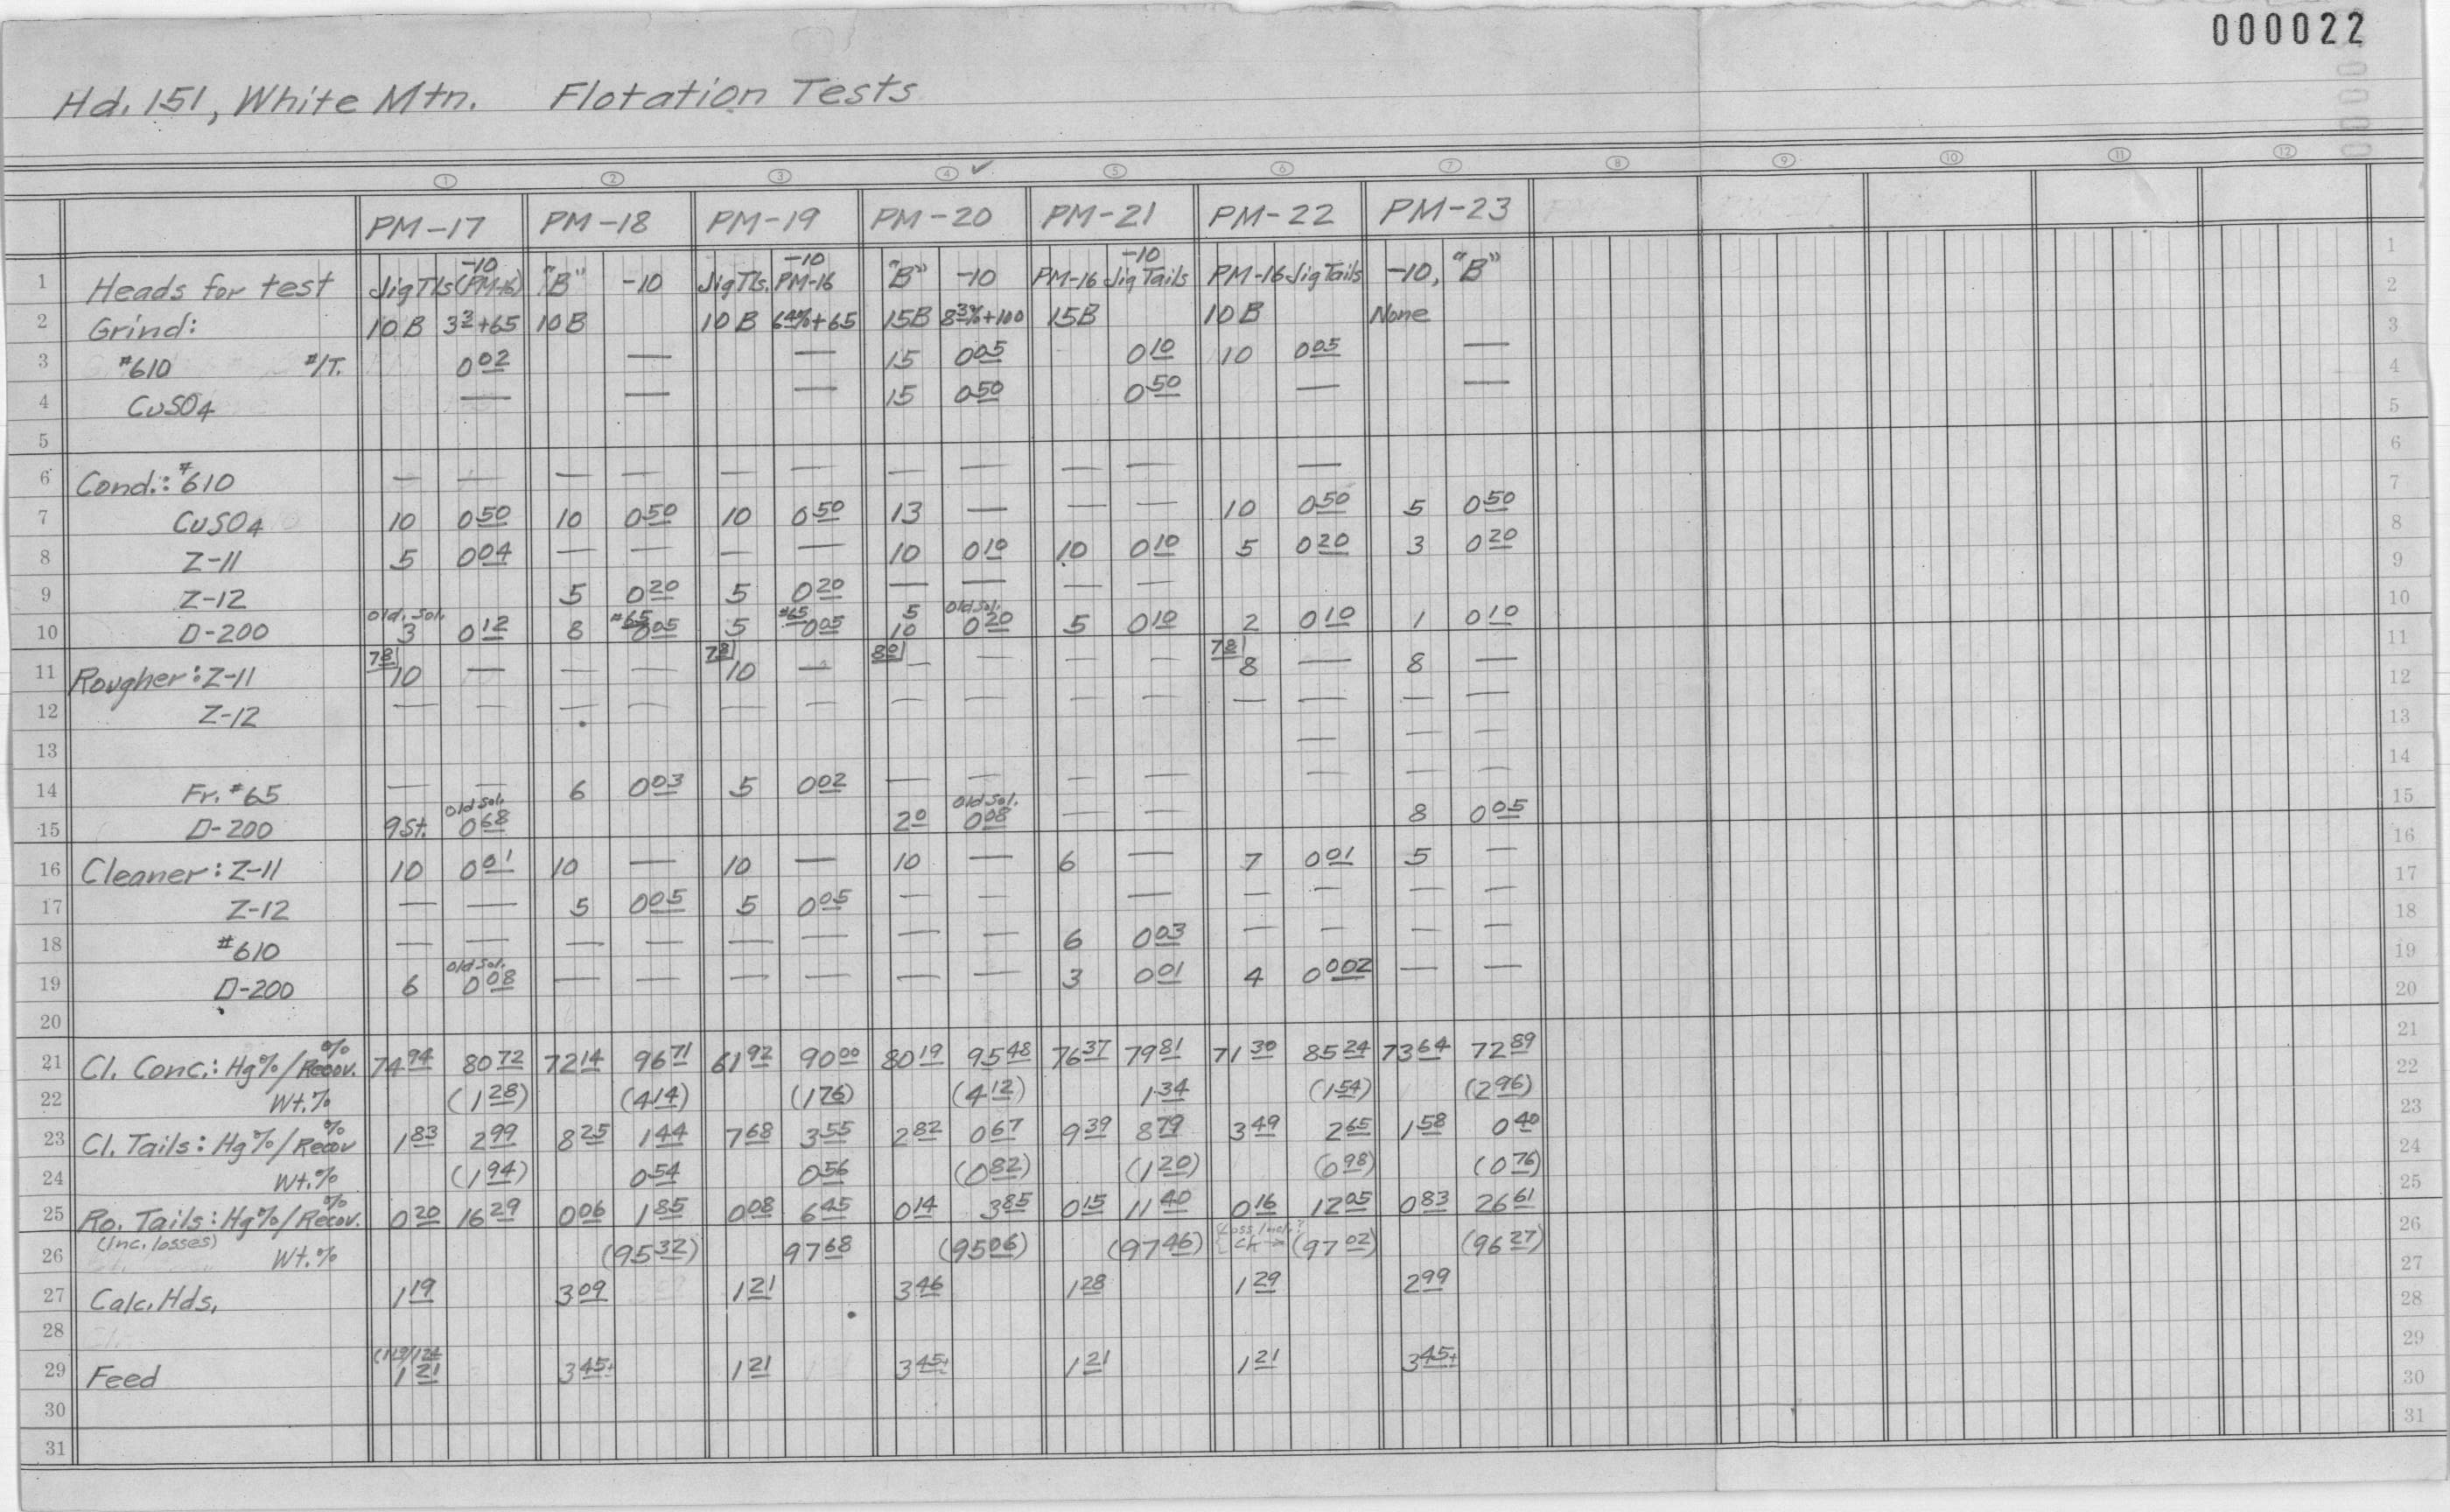 000022
Hd. 151, White Mtn. Flotation Tests
1 2 3 4 ✓ 5 6 7 8 9 10 11 12
PM-17 PM-18 PM-19 PM-20 PM-21 PM-22 PM-23
1 Heads for test Jig Tls (PM-16) -10 "B" -10 Jig Tls. PM-16 -10 "B" -10 PM-16 Jig Tails -10 PM-16 Jig Tails -10, "B" 1
2 Grind: 10 B 3 3+65 10 B 10 B 6 4%+65 15B 8 3%+100 15B 10 B None 2
3 #610 #/T. 0 02 — — 15 0 05 0 10 10 0 05 — 3
4 CuSO4 — — — 15 0 50 0 50 — — 4
5 5
6 Cond.: #610 — — — — — — — — — — — 6
7 CuSO4 10 0 50 10 0 50 10 0 50 13 — — — 10 0 50 5 0 50 7
8 Z-11 5 0 04 — — — — 10 0 10 10 0 10 5 0 20 3 0 20 8
9 Z-12 5 0 20 5 0 20 — — — — 9
10 D-200 Old. Sol. 3 0 12 8 #65 0 05 5 #65 0 05 5 10 Old Sol. 0 20 5 0 10 2 0 10 1 0 10 10
11 Rougher: Z-11 7 8 10 — — — 7 8 10 — 8 0 — — — — 7 8 8 — 8 — 11
12 Z-12 — — — — — — — — — — — — — — 12
13 — — — 13
14 Fr. #65 — — 6 0 03 5 0 02 — — — — — — — 14
15 D-200 9 St. Old Sol. 0 68 2 0 Old Sol. 0 08 — — 8 0 05 15
16 Cleaner: Z-11 10 0 01 10 — 10 — 10 — 6 — 7 0 01 5 — 16
17 Z-12 — — 5 0 05 5 0 05 — — — — — — — 17
18 #610 — — — — — — — — 6 0 03 — — — — 18
19 D-200 6 Old Sol. 0 08 — — — — — — 3 0 01 4 0 002 — — 19
20 20
21 Cl. Conc.: Hg%/Recov. % 74 94 80 72 72 14 96 71 61 92 90 00 80 19 95 48 76 37 79 81 71 30 85 24 73 64 72 89 21
22 Wt.% (1 28) (4 14) (1 76) (4 12) 1 34 (1 54) (2 96) 22
23 Cl. Tails: Hg%/Recov % 1 83 2 99 8 25 1 44 7 68 3 55 2 82 0 67 9 39 8 79 3 49 2 65 1 58 0 40 23
24 Wt.% (1 94) 0 54 0 56 (0 82) (1 20) (0 98) (0 76) 24
25 Ro. Tails: Hg%/Recov. % 0 20 16 29 0 06 1 85 0 08 6 45 0 14 3 85 0 15 11 40 0 16 12 05 0 83 26 61 25
26 (Inc. losses) Wt.% (95 32) 97 68 (95 06) (97 46) Loss incl.? ck → (97 02) (96 27) 26
27 Calc. Hds, 1 19 3 09 1 21 3 46 1 28 1 29 2 99 27
28 28
29 Feed 1 21 3 45+ 1 21 3 45+ 1 21 1 21 3 45+ 29
30 30
31 31